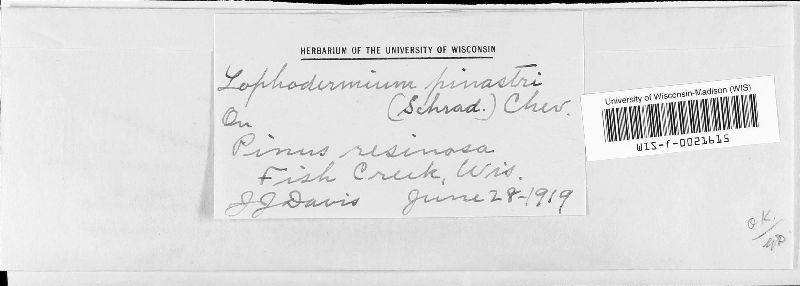 HERBARIUM OF THE UNIVERSITY OF WISCONSIN
Lophodermium pinastri
(Schrad.) Chev.
On
Pinus resinosa
Fish Creek, Wis.
JJ Davis June 28-1919
University of Wisconsin-Madison (WIS)
WIS-f-0021615
O.K.